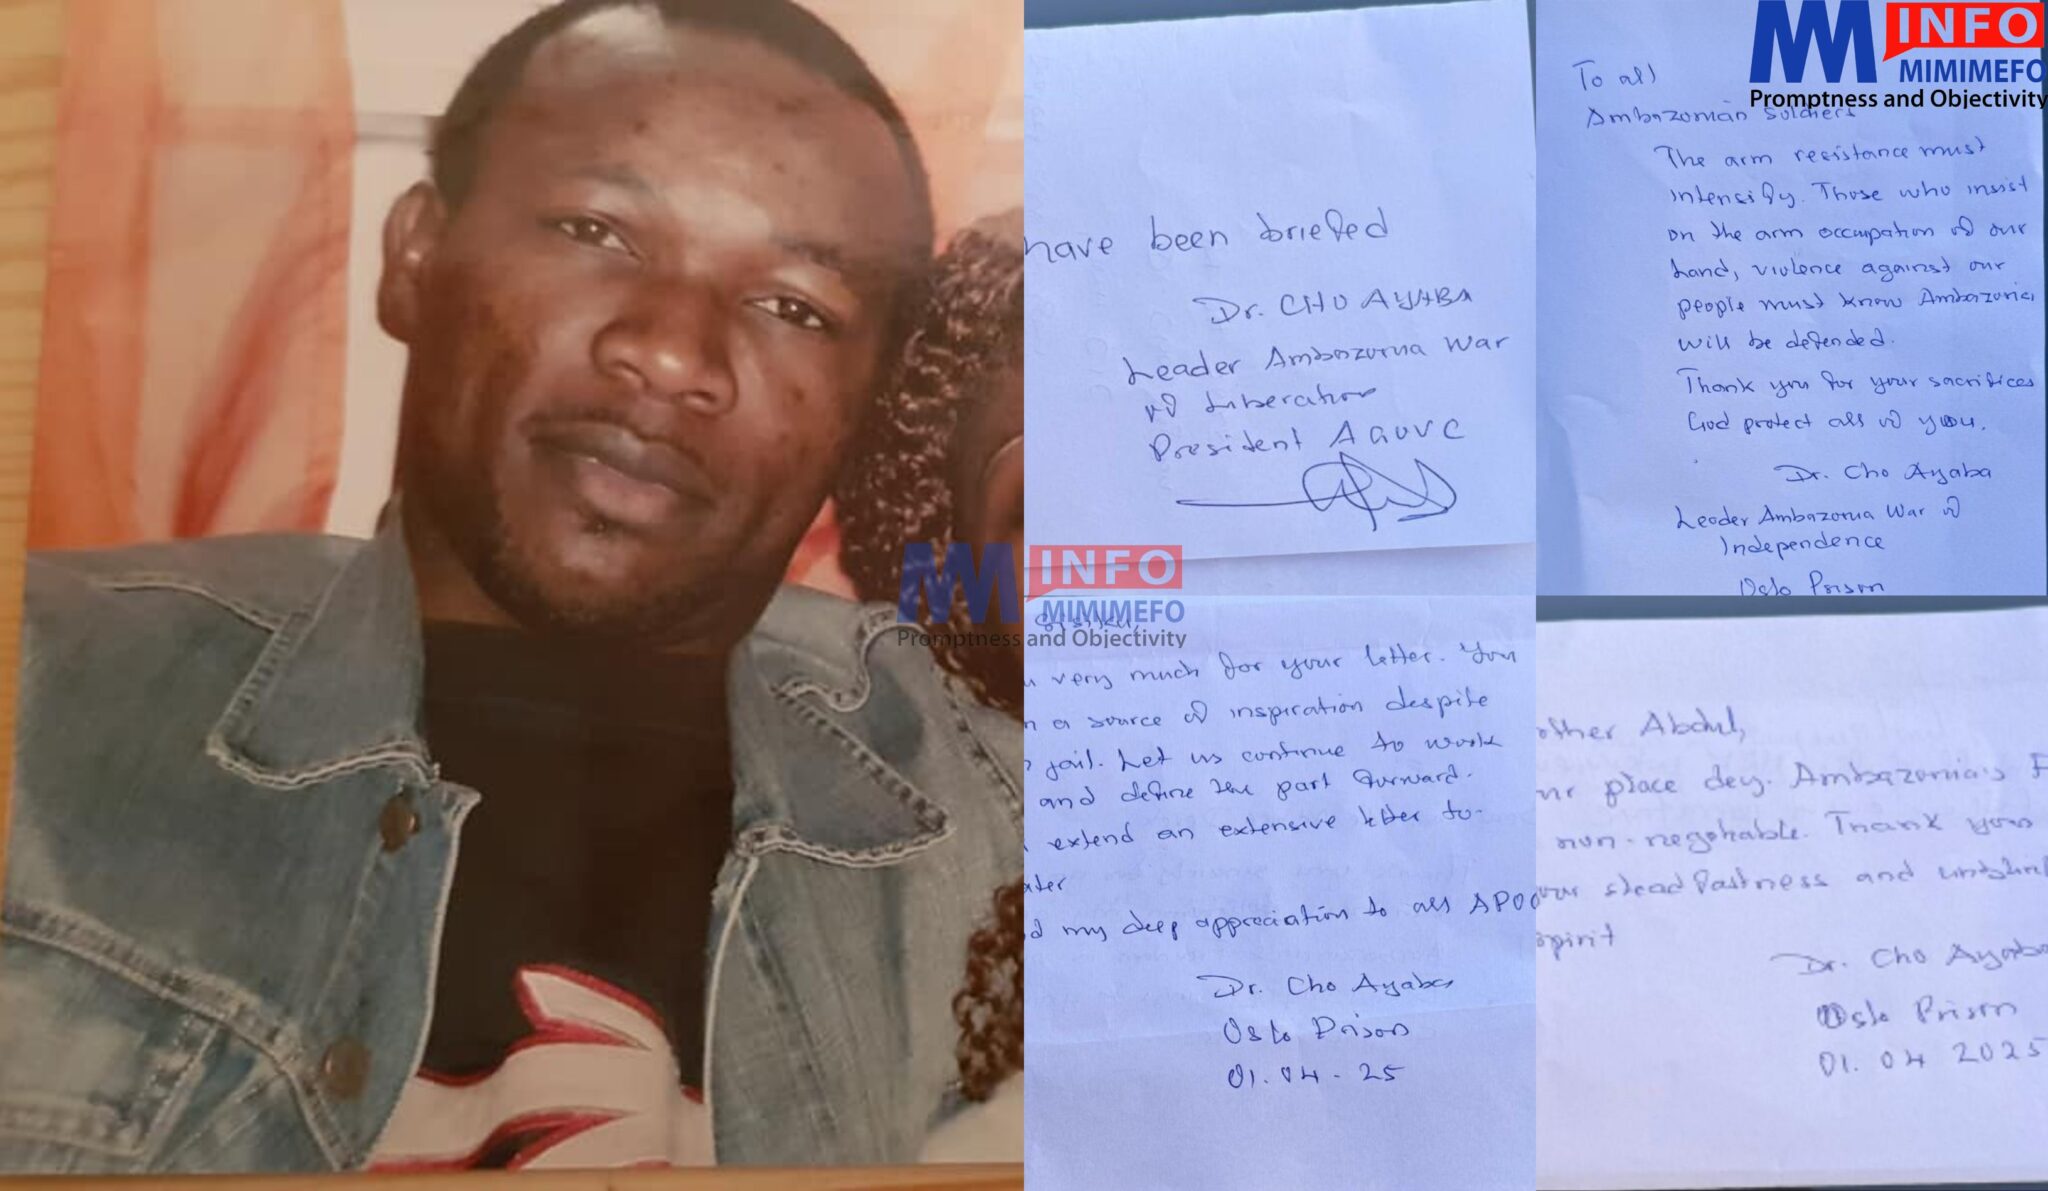 have been briefed
Dr. CHO AYABA
Leader Ambazonia War
of Liberation
President AGOVC
INFO
MIMIMEFO
Promptness and Objectivity
To all
Ambazonian Soldiers
The arm resistance must
intensify. Those who insist
on the arm occupation of our
Land, violence against our
people must know Ambazonia
will be defended.
Thank you for your sacrifices
God protect all of you.
Dr. Cho Ayaba
Leader Ambazonia War of
Independence
Oslo Prison
INFO
MIMIMEFO
Promptness and Objectivity
very much for your letter. You
a source of inspiration despite
jail. Let us continue to work
and define the part forward.
extend an extensive letter to-
my deep appreciation to all APOC
Dr. Cho Ayaba
Oslo Prison
01.04-25
other Abdul,
place dey. Ambazonia's F
non-negotiable. Thank you
steadfastness and
spirit
Dr. Cho Ayaba
Oslo Prison
01.04 2025